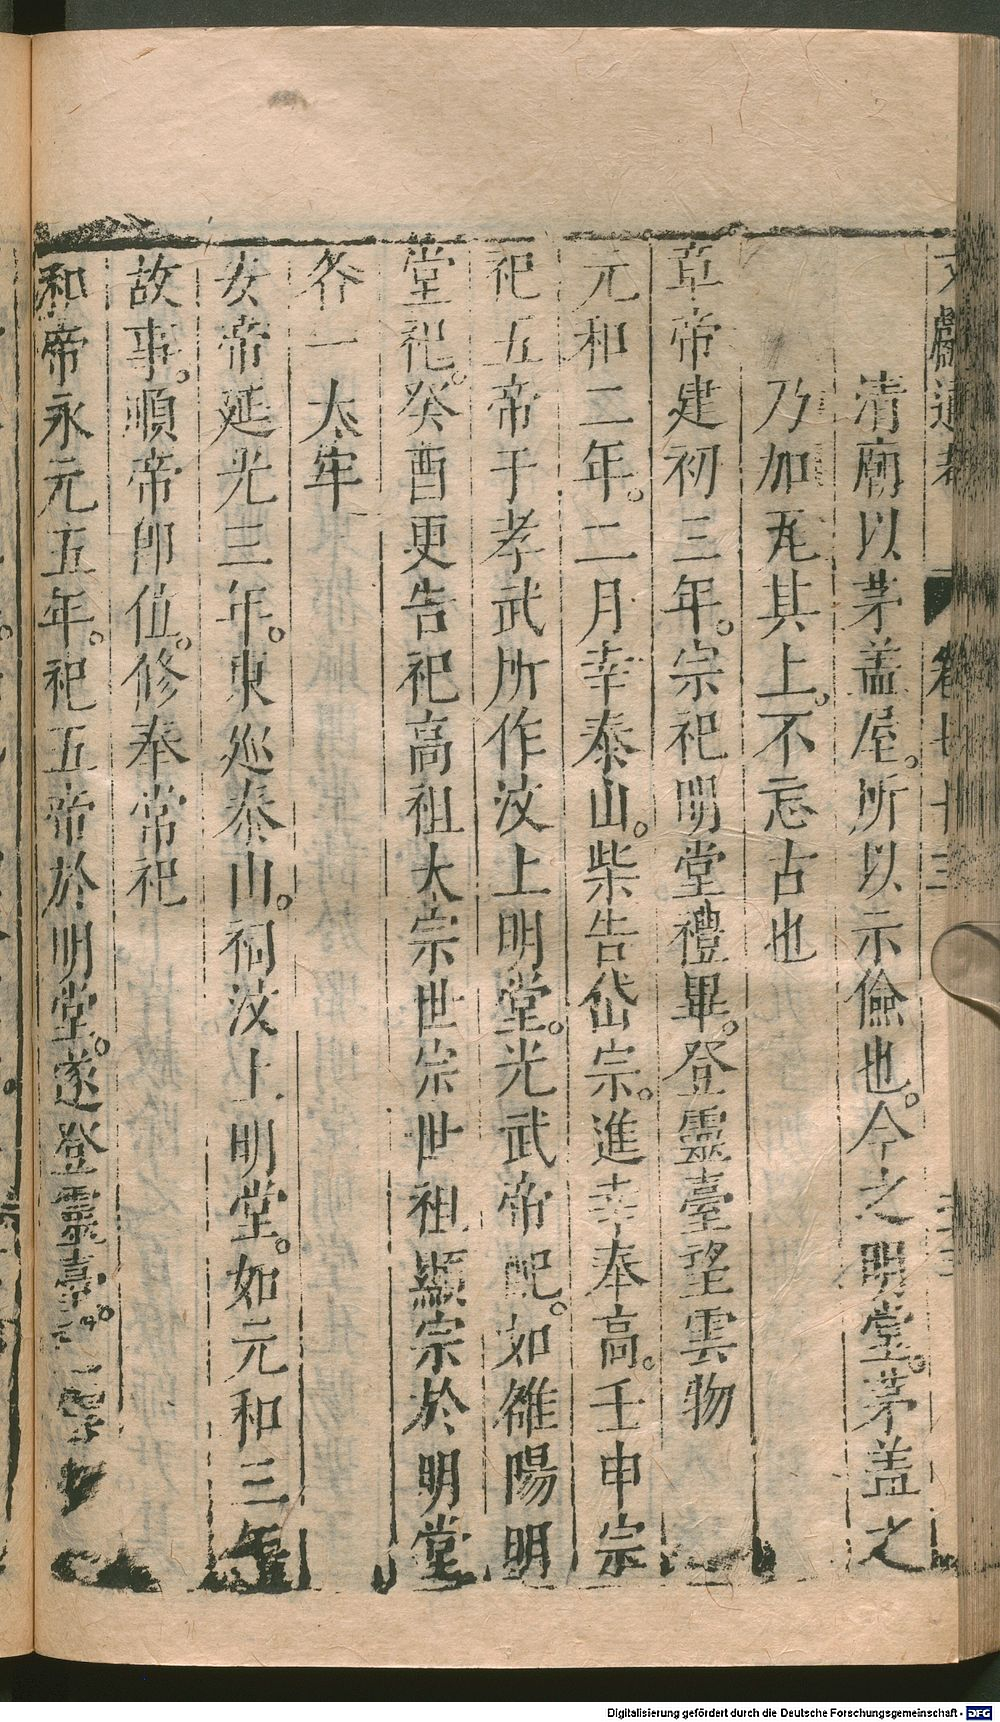 文獻通考 卷七十三
清廟以茅盖屋。所以示儉也。今之明堂。茅盖之
乃加瓦其上。不忘古也
章帝建初三年。宗祀明堂禮畢。登靈臺望雲物
元和二年。二月幸泰山。柴告岱宗。進幸奉高。壬申宗
祀五帝于孝武所作汶上明堂。光武帝配。如雒陽明
堂祀。癸酉更告祀高祖太宗世宗世祖顯宗於明堂
各一太牢
安帝延光三年。東巡泰山。祠汶上明堂。如元和三年
故事。順帝卽位。修奉常祀
和帝永元五年。祀五帝於明堂。遂登靈臺。
Digitalisierung gefördert durch die Deutsche Forschungsgemeinschaft - DFG